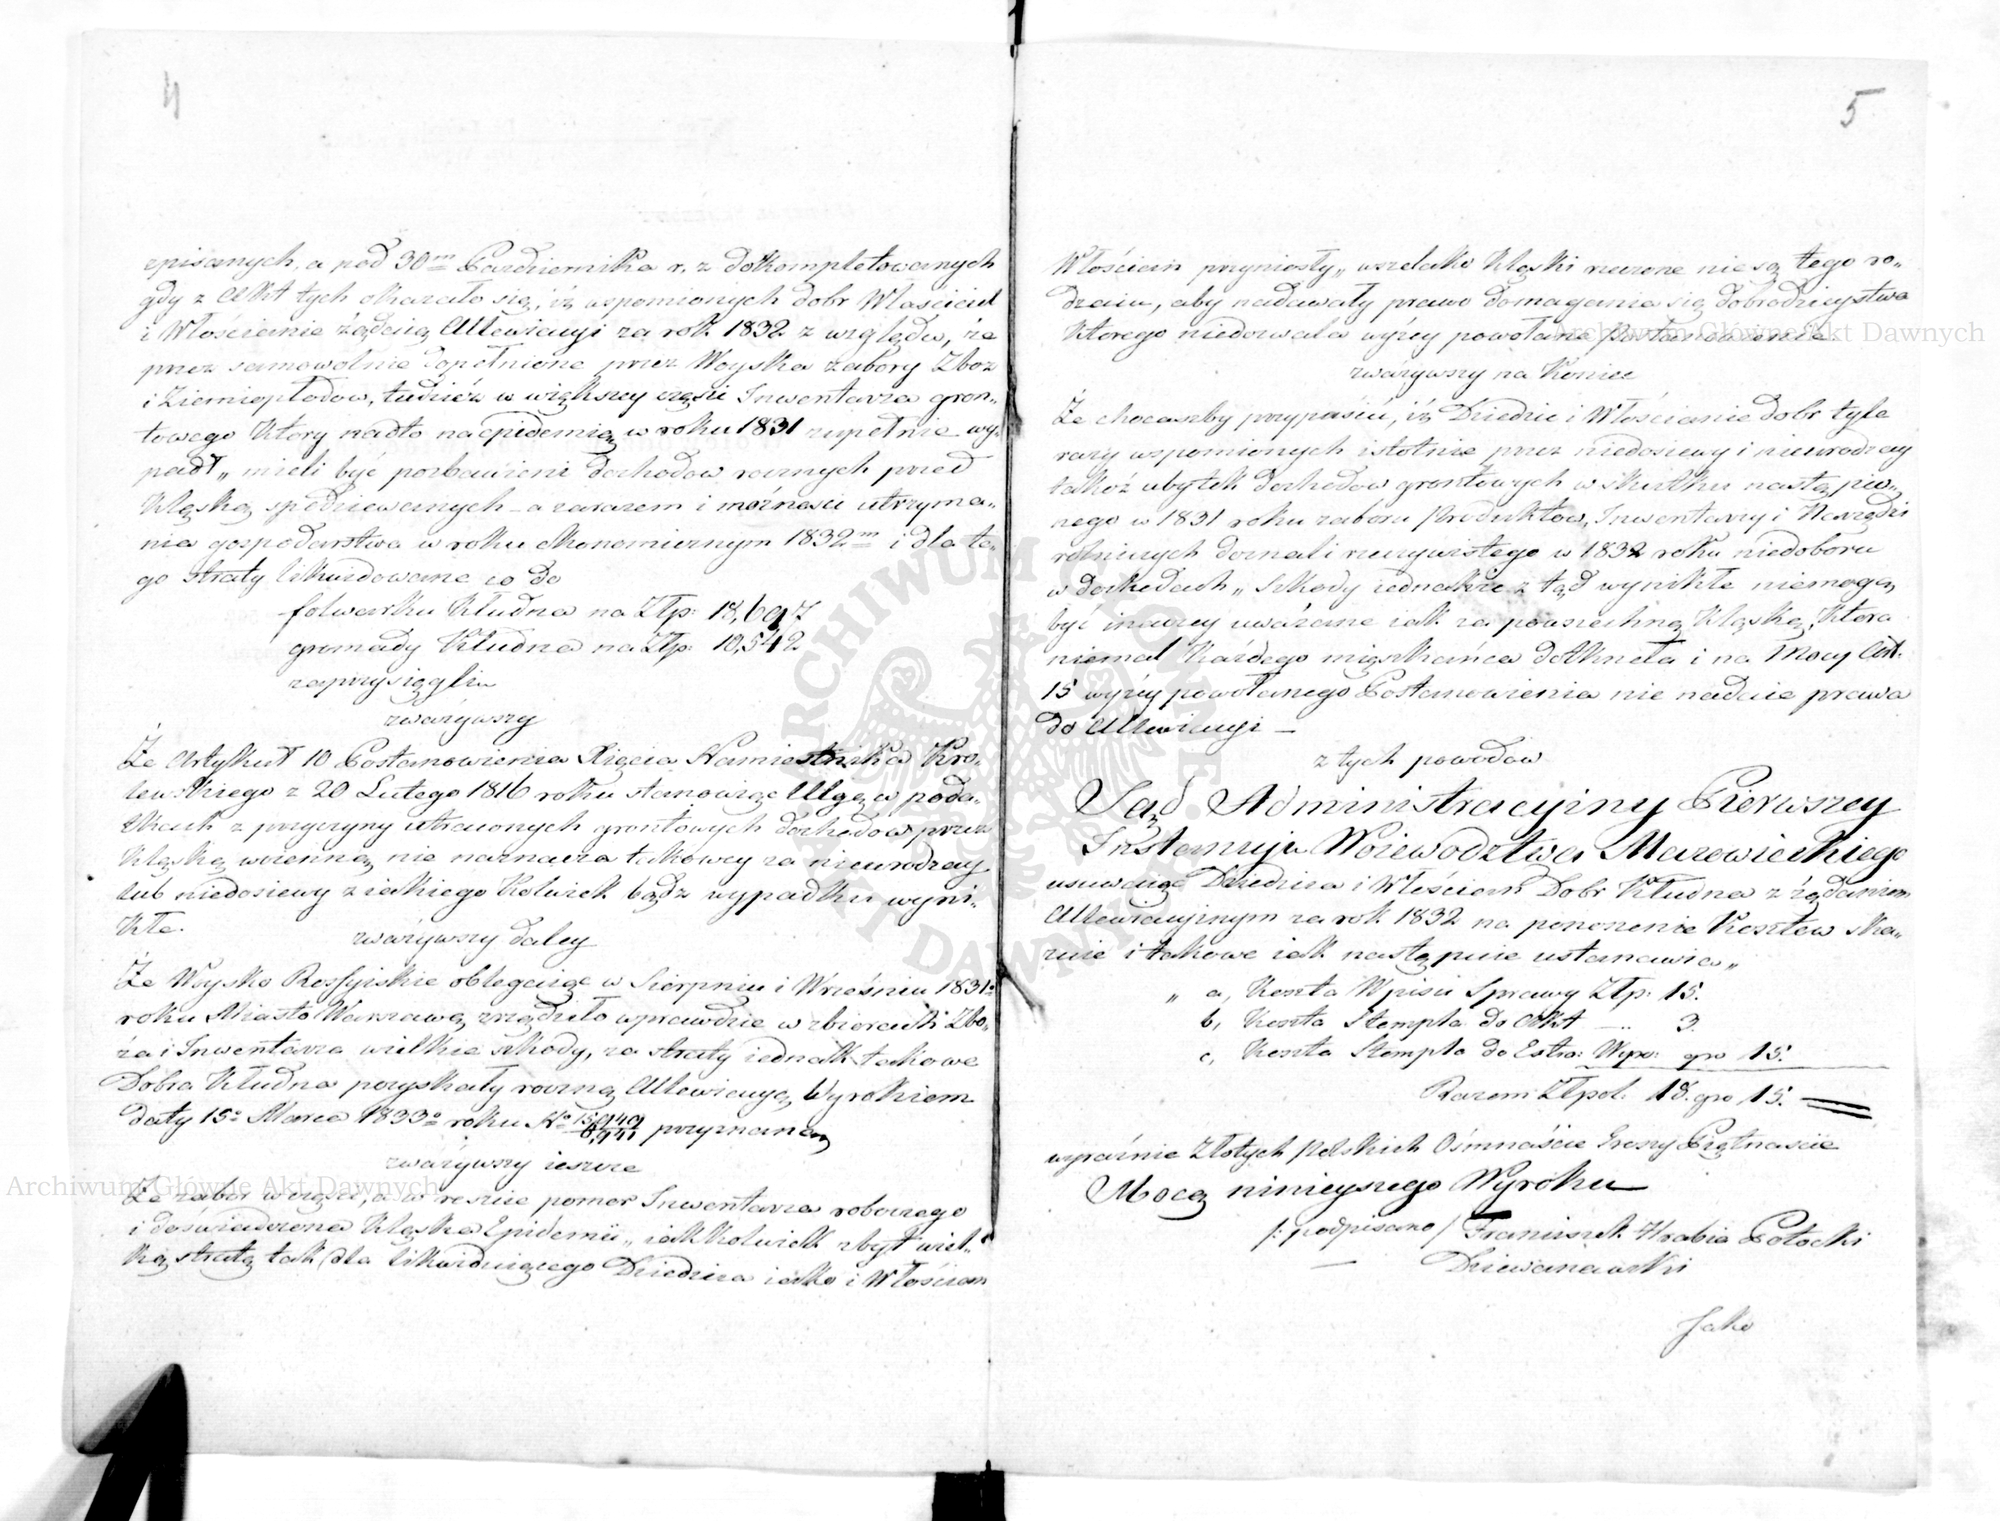 4
spisanych, a pod 30m Pazdziernika r. z. dokompletowanych
gdy z Akt tych okazało się, iż wspomionych dobr Właściciel
i Włościanie żądaią Allewiacyi za rok 1832 z względu, że
przez samowolnie dopełnione przez Woyska zabory Zboz
i Ziemiopłodow, tudzież w większey części Inwentarza gron„
towego ktory nadto na epidemią w roku 1831 zupełnie wy„
padł„ mieli być pozbawieni dochodow rocznych przed
klęską spodziewanych – a zarazem i możności utrzyma„
nia gospodarstwa w roku ekonomicznym 1832m i dla te„
go straty likwidowane co do
folwarku Kłudna na Złp: 18,697
gromady Kłudna na Złp: 10,542
zaprzysięgli
zważywszy
Że Artykuł 10 Postanowienia Xięcia Namiestnika Kro„
lewskiego z 20 Lutego 1816 roku stanowiąc Ulgę w poda„
tkach z przyczyny utraconych grontowych dochodow przez
klęskę woienną nie naznacza takowey za nieurodzay
lub niedosiewy z iakiego kolwiek bądź wypadku wyni„
kłe.
zważywszy daley
Że Woysko Rossyiskie oblegaiąc w Sierpniu i Wrześniu 1831o
roku Miasto Warszawę zrządziło wprawdzie w zbiorach Zbo„
ża i Inwentarza wielkie szkody, za straty iednak takowe
Dobra Kłudna pozyskały roczną Allewiacyą Wyrokiem
daty 15o Marca 1833o roku No przyznaną
zważywszy ieszcze
Że zabor w części, a w reszcie pomor Inwentarza roboczego
i doświadczona klęska Epidemii„ iakkolwiek zbyt wiel„
ką stratę tak dla likwiduiącego Dziedzica iako i Włościan
5
Włościan przyniosły„ wszelako klęski rzeczone nie są tego ro„
dzaiu, aby nadawały prawo domagania się dobrodzieystwa
ktorego niedozwala wyżey powołane postanowienie
zważywszy na koniec
Że chociażby przypuścić, iż Dziedzic i Włościanie dobr tyle
razy wspomionych istotnie przez niedosiewy i nieurodzay
takoż ubytek dochodow grontowych w skutku nastąpio„
nego w 1831 roku zaboru Produktow, Inwentarzy i Narzędzi
rolniczych doznali rzeczywistego w 1832 roku niedoboru
w dochodach„ Szkody iednakże z tąd wynikłe niemogą
być inaczey uważane iak za powszechną klęskę, ktora
niemal każdego mięszkańca dotknęła i na Mocy Art.
15 wyżey powołanego Postanowienia nie nadaie prawa
do Allewiacyi –
z tych powodow
Sąd Administracyiny Pierwszey
Instancyi Woiewodztwa Mazowieckiego
usuwaiąc Dziedzica i Włościan Dobr Kłudna z żądaniem
Allewiacyinym za rok 1832 na ponoszenie Kosztow ska„
zuie i takowe iak następuie ustanawia„
„ a, Koszta Wpisu Sprawy Złp: 15.
b, Koszta Stempla do Akt — „ 3.
c, Koszta Stempla do Extra: Wyro: gro 15.
Razem Złpol: 18. gro 15.
wyraźnie Złotych polskich Ośmnaście Groszy Piętnaście
Mocą ninieyszego Wyroku
/: podpisano / Franciszek Hrabia Potocki
— Dziewanowski
Jako
Archiwum Główne Akt Dawnych
Archiwum Główne Akt Dawnych
ARCHIWUM GŁÓWNE AKT DAWNYCH